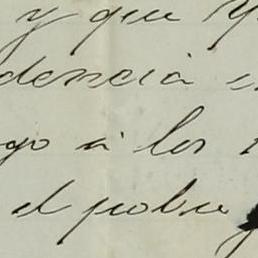 y que
dencia
go a los
el pobre